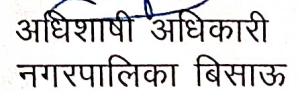 अधिशाषी अधिकारी
नगरपालिका बिसाऊ